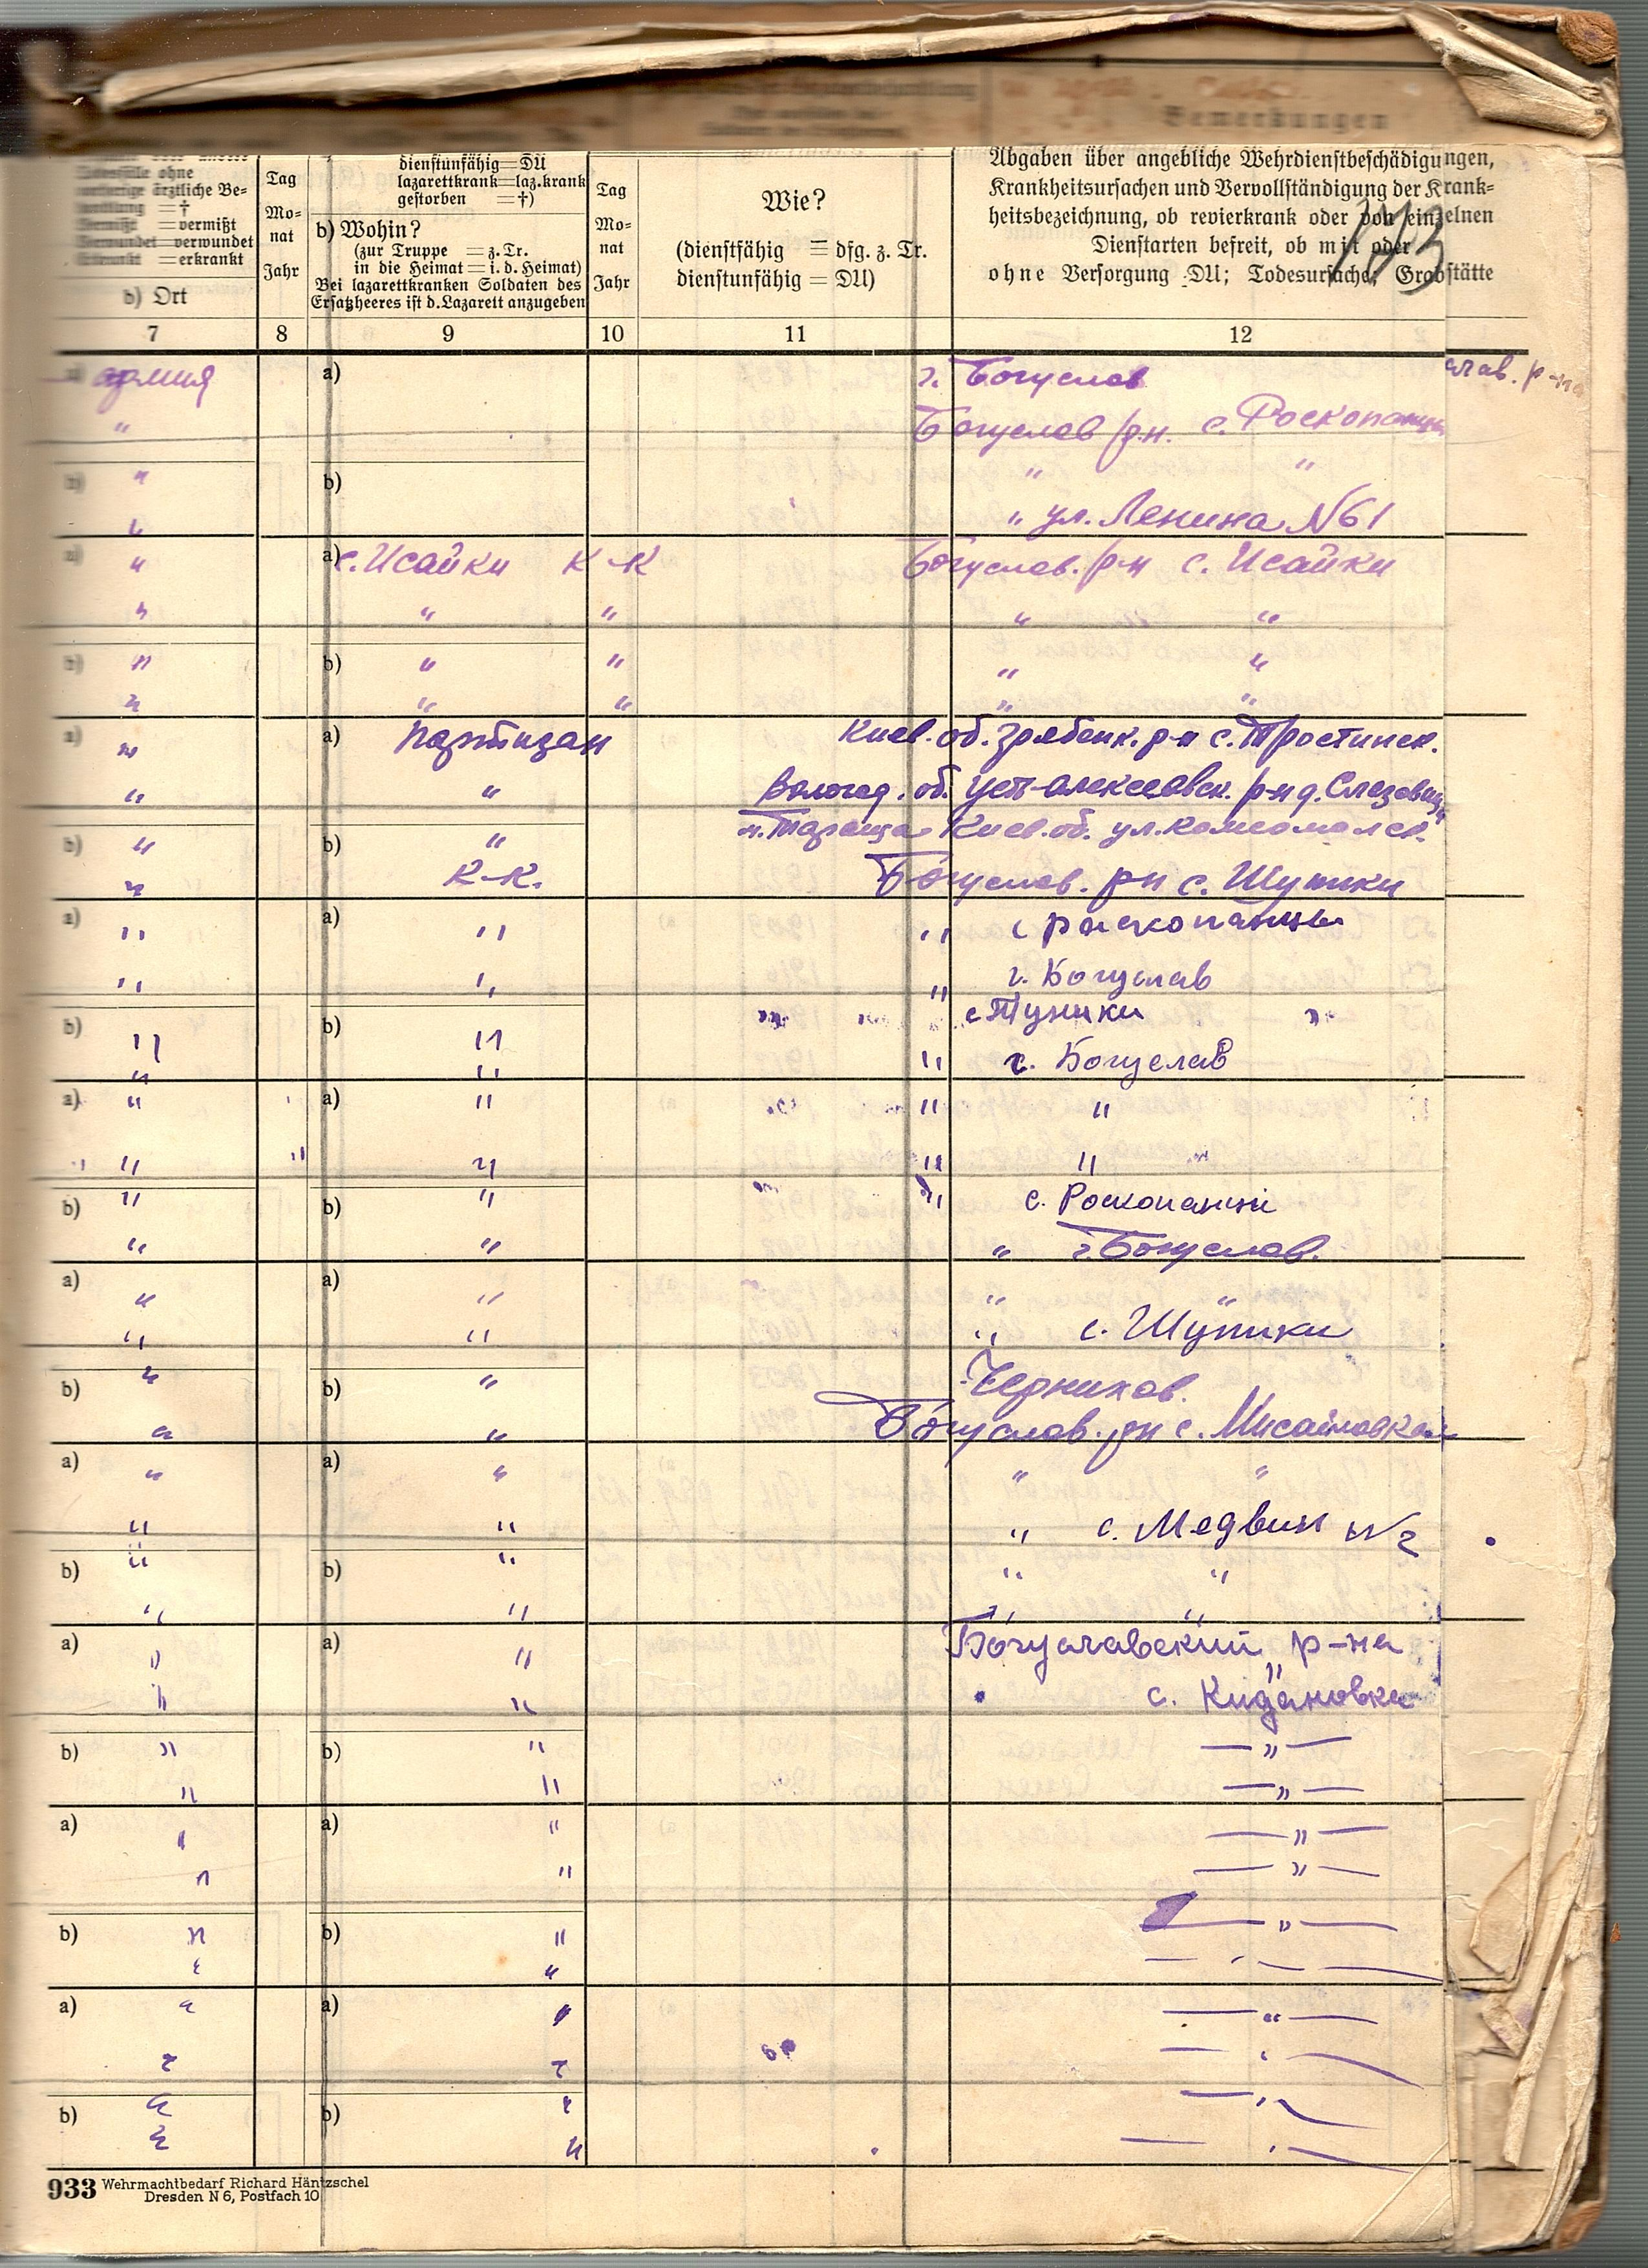 Bemerkungen
vorherige ärztliche Be=
handlung =†
Vermißt =vermißt
Verwundet=verwundet
Erkrankt =erkrankt
b) Ort
Tag
Mo=
nat
Jahr
dienstunfähig=DU
lazarettkrank=laz.krank
gestorben =†)
b) Wohin?
(zur Truppe =z.Tr.
in die Heimat=i.d.Heimat)
Bei lazarettkranken Soldaten des
Ersatzheeres ist d.Lazarett anzugeben
Tag
Mo=
nat
Jahr
Wie?
(dienstfähig = dfg. z. Tr.
dienstunfähig = DU)
Abgaben über angebliche Wehrdienstbeschädigungen,
Krankheitsursachen und Vervollständigung der Krank=
heitsbezeichnung, ob revierkrank oder von einzelnen
Dienstarten befreit, ob mit oder
ohne Versorgung DU; Todesursache; Grabstätte
7 8 9 10 11 12
а) армия a) г. Богуслав слав. р-на
" Богуслав р.н. с. Роскопанцы
b) " b) " "
" " ул. Ленина №61
a) " a) с. Исайки К-К Богуслав. р-н с. Исайки
" " " " "
b) " b) " " " "
" " " " "
a) " a) партизан Киев. об. р-н с.
" " Вологод. об. Уст-Алексеевск. р-н д.
b) " b) " Тараща Киев. об. ул. Комсомолск.
" К-К. Богуслав. р-н с. Шупики
a) " a) " " с роскопанцы
" " " г. Богуслав
b) " b) " " с
" " " г. Богуслав
a) " a) " " "
" " " " "
b) " b) " " с. Роскопанці
" " " г. Богуслав.
a) " a) " "
" " " с. Шупики
b) " b) " Чернихов.
" " Богуслав. рн с. Мисайловка
a) " a) " " "
" " " с. Медвин №2
b) " b) " " "
" " " "
a) " a) " Богуславский р-на
" " " с. Кидановка
b) " b) " — " —
" " — " —
a) " a) " — " —
" " — " —
b) " b) " — " —
" " — " —
a) " a) " — " —
" " — " —
b) " b) " — " —
" " — " —
933 Wehrmachtbedarf Richard Häntzschel
Dresden N 6, Postfach 10